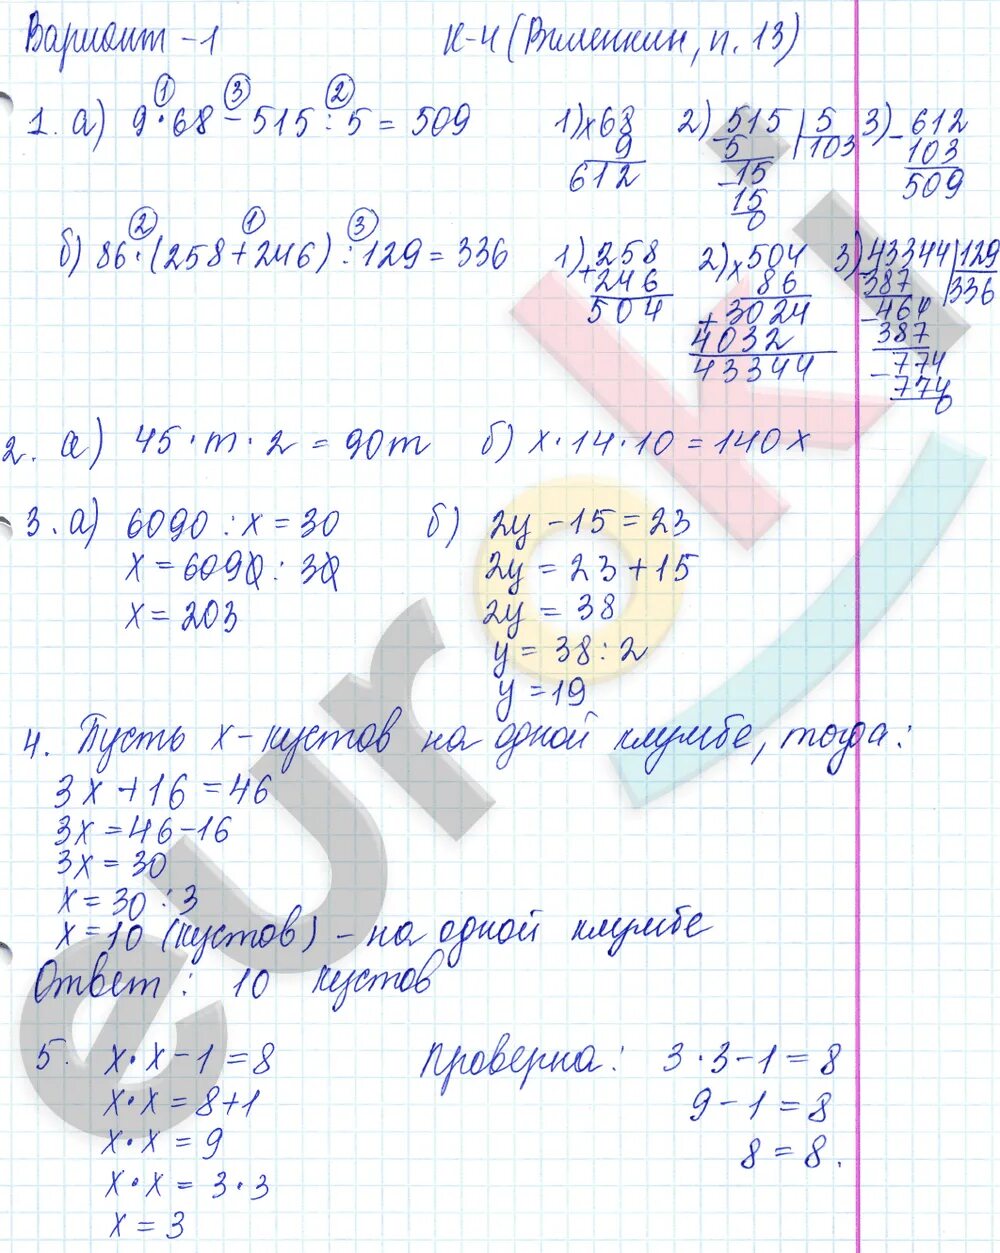 Вариант - 1 К-4 (Виленкин, п. 13)
1. а) 9 · 68 - 515 : 5 = 509
① ③ ②
1) × 68
9
612
2) - 515 | 5
5 | 103
- 15
15
0
3) - 612
103
509
б) 86 · (258 + 246) : 129 = 336
② ① ③
1) + 258
246
504
2) × 504
86
+ 3024
4032
43344
3) - 43344 | 129
387 | 336
- 464
387
- 774
774
0
2. а) 45 · m · 2 = 90m б) x · 14 · 10 = 140x
3. а) 6090 : x = 30
x = 6090 : 30
x = 203
б) 2y - 15 = 23
2y = 23 + 15
2y = 38
y = 38 : 2
y = 19
4. Пусть x - кустов на одной клумбе, тогда:
3x + 16 = 46
3x = 46 - 16
3x = 30
x = 30 : 3
x = 10 (кустов) - на одной клумбе
Ответ: 10 кустов
5. x · x - 1 = 8
x · x = 8 + 1
x · x = 9
x · x = 3 · 3
x = 3
Проверка: 3 · 3 - 1 = 8
9 - 1 = 8
8 = 8.
euroki